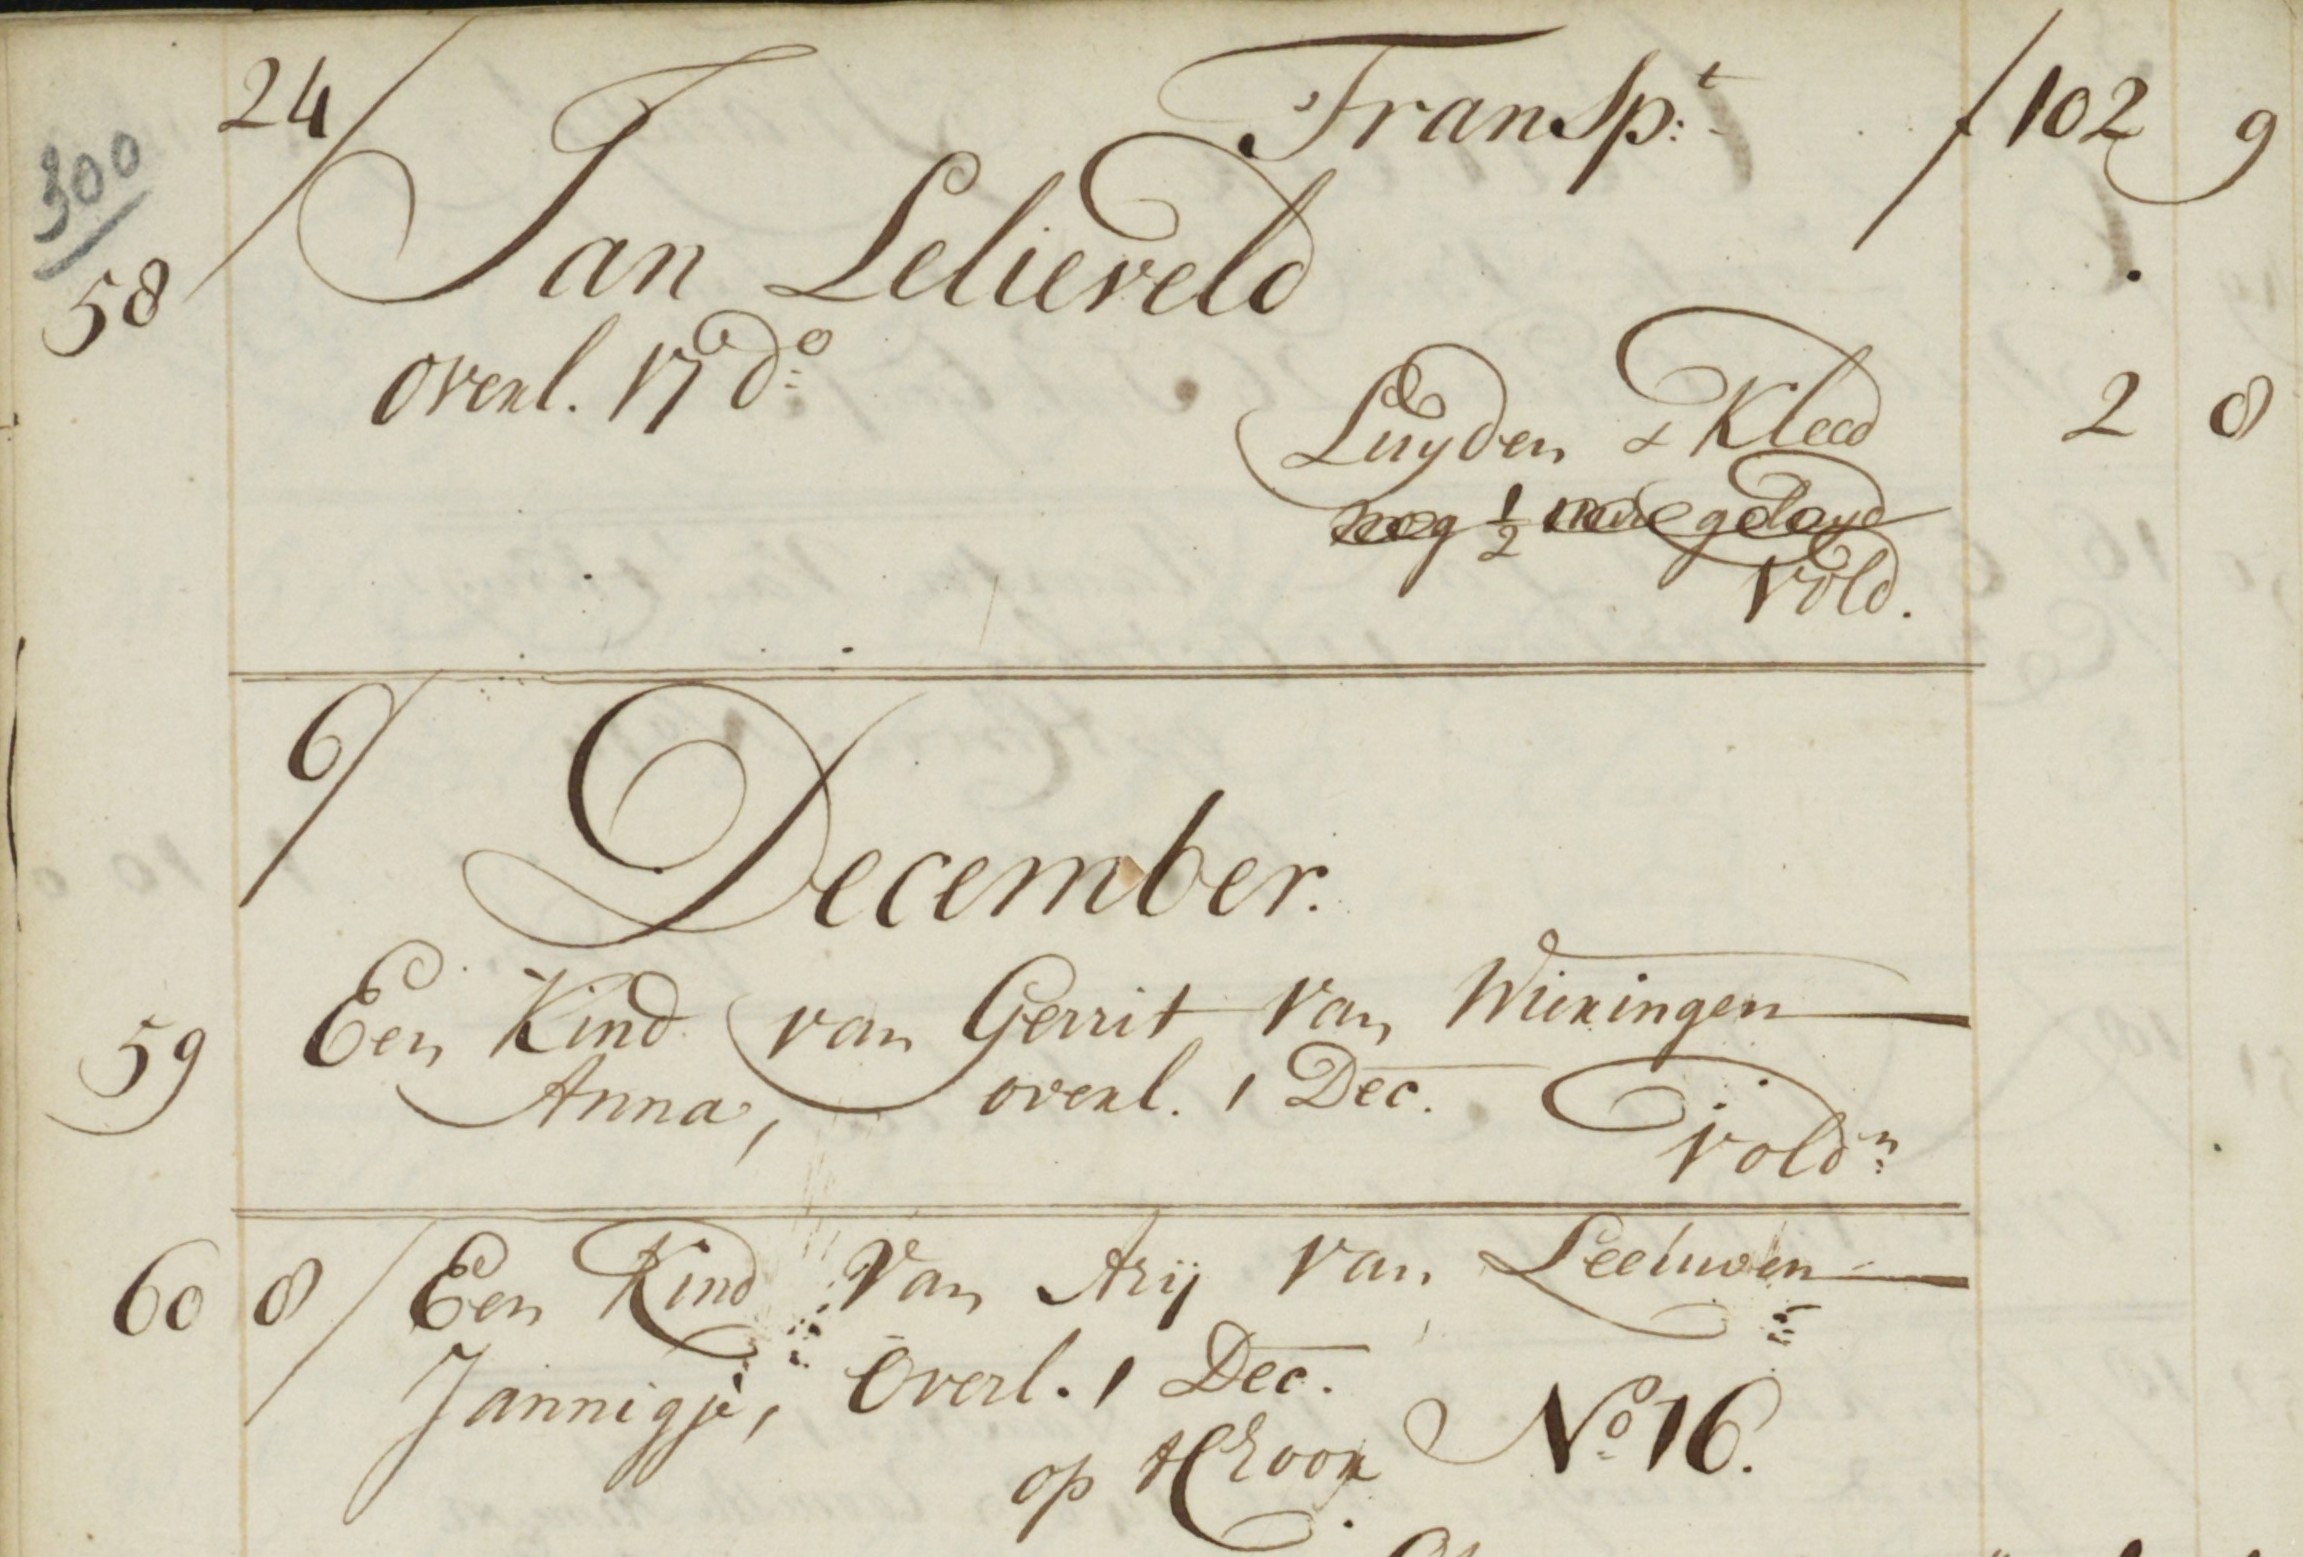 300
24/ Transp:t f 102 9
58 Jan Lelieveld
overl. 17 do: Luyden & Kleed 2 8
nog 1/2 uure geluyd
vold.
6/
December.
59 Een Kind van Gerrit van Wieringen
Anna, overl. 1 Dec. voldn:
60 8/ Een Kind van Arij van Leeuwen
Jannigje, Overl. 1 Dec.
op 't Choor No 16.